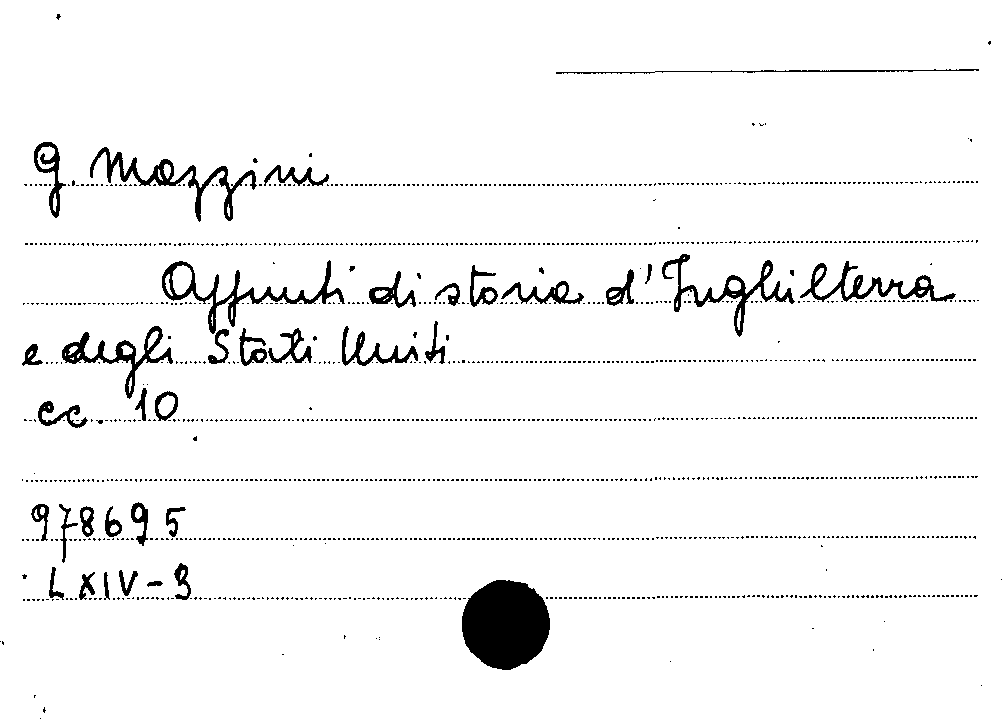 G. Mazzini
Appunti di storia d'Inghilterra
e degli Stati Uniti.
cc. 10
978695
LXIV-3